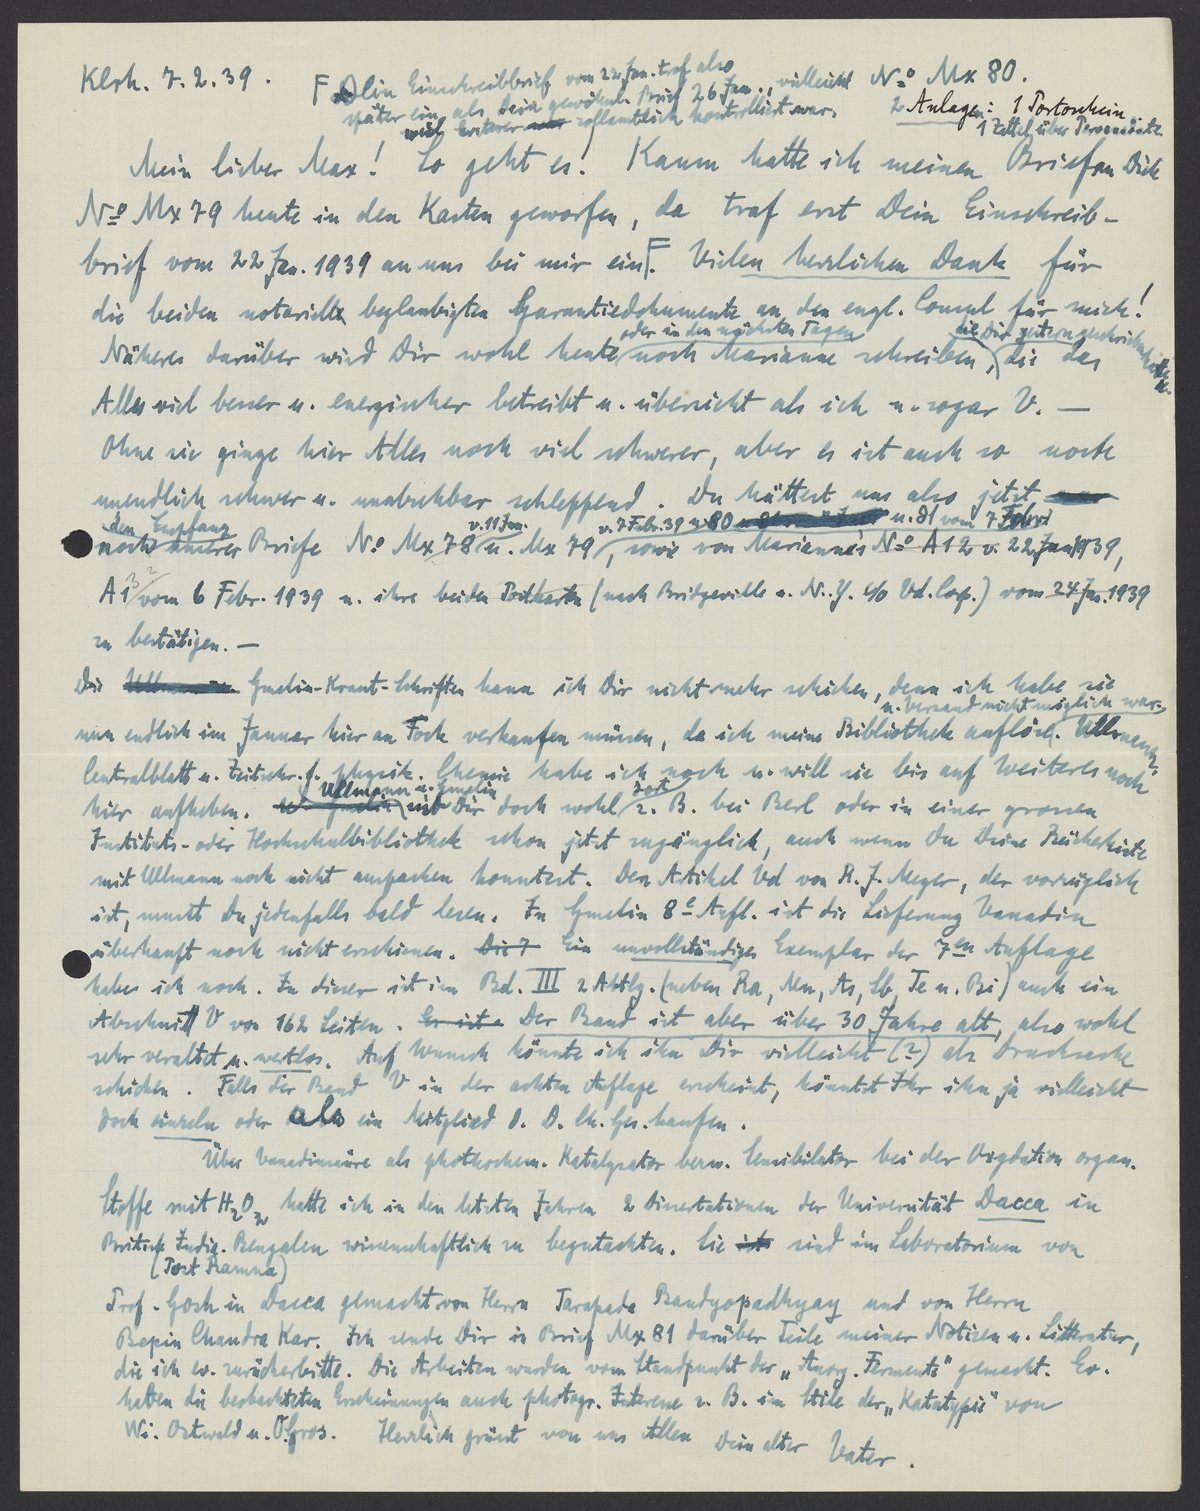 Klrh. 7.2.39.
F Dein Einschreibbrief vom 22 Jan. traf also
später ein als Dein gewöhnl. Brief 26 Jan., vielleicht
weil ersterer zollamtlich kontrolliert war.
No Mx 80.
2 Anlagen: 1 Portoschein
1 Zettel über Personalakte
Mein lieber Max! So geht es! Kaum hatte ich meinen Brief an Dich
No Mx 79 heute in den Kasten geworfen, da traf erst Dein Einschreib-
brief vom 22 Jan. 1939 an uns bei mir ein F. Vielen herzlichen Dank für
die beiden notariell beglaubigten Garantiedokumente an den engl. Consul für mich!
oder in den nächsten Tagen
die Dir gestern geschrieben hatte
Näheres darüber wird Dir wohl heute noch Marianne schreiben, die das
Alles viel besser u. energischer betreibt u. übersieht als ich u. sogar V. —
Ohne sie ginge hier Alles noch viel schwerer, aber es ist auch so noch
unendlich schwer u. unabsehbar schleppend. Du hättest uns also jetzt
den Empfang
v. 11 Jan.
v. 7 Febr. 39 u. 80
u. 81 vom 7 Febr.
noch unserer Briefe No Mx 78 u. Mx 79, sowie von Marianne's No A 12 v. 22 Jan 1939,
A 13 vom 6 Febr. 1939 u. ihre beiden Postkarten (nach Bridgeville u. N.Y. c/o Vd. Corp.) vom 24 Jan. 1939
zu bestätigen. —
Die Gmelin-Kraut-Schriften kann ich Dir nicht mehr schicken, denn ich habe sie
u. Versand nicht möglich war.
nun endlich im Januar hier an Fock verkaufen müssen, da ich meine Bibliothek auflöse. Ullmann,
Centralblatt u. Zeitschr. f. physik. Chemie habe ich noch u. will sie bis auf Weiteres noch
Ullmann u. Gmelin
dort
hier aufheben. ist Dir doch wohl z. B. bei Berl oder in einer grossen
Instituts- oder Hochschulbibliothek schon jetzt zugänglich, auch wenn Du Deine Bücherkiste
mit Ullmann noch nicht auspacken konntest. Den Artikel Vd von R. J. Meyer, der vorzüglich
ist, musst Du jedenfalls bald lesen. In Gmelin 8e Aufl. ist die Lieferung Vanadin
überhaupt noch nicht erschienen. Die 7 Ein unvollständiges Exemplar der 7en Auflage
habe ich noch. In dieser ist im Bd. III 2 Abtlg. (neben Ra, Mn, As, Sb, Te u. Bi) auch ein
Abschnitt V von 162 Seiten. Er ist Der Band ist aber über 30 Jahre alt, also wohl
sehr veraltet u. wertlos. Auf Wunsch könnte ich ihn Dir vielleicht (?) als Drucksache
schicken. Falls der Band V in der achten Auflage erscheint, könntet Ihr ihn ja vielleicht
doch einzeln oder als ein Mitglied d. D. Ch. Ges. kaufen.
Über Vanadinsäure als photochem. Katalysator bezw. Sensibilator bei der Oxydation organ.
Stoffe mit H2O2 hatte ich in den letzten Jahren 2 Dissertationen der Universität Dacca in
Britisch Indien. Bengalen wissenschaftlich zu begutachten. Sie sind im Laboratorium von
(Post Ramna)
Prof. Gosh in Dacca gemacht von Herrn Tarapada Bandyopadhyay und von Herrn
Bepin Chandra Kar. Ich sende Dir in Brief Mx 81 darüber Teile meiner Notizen u. Litteratur,
die ich ev. zurückerbitte. Die Arbeiten wurden vom Standpunkt der „Anorg. Fermente" gemacht. Ev.
hatten die beobachteten Erscheinungen auch photogr. Interesse z. B. im Stile der „Katatypie" von
Wi. Ostwald u. O. Gros. Herzlich grüsst von uns Allen Dein alter Vater.